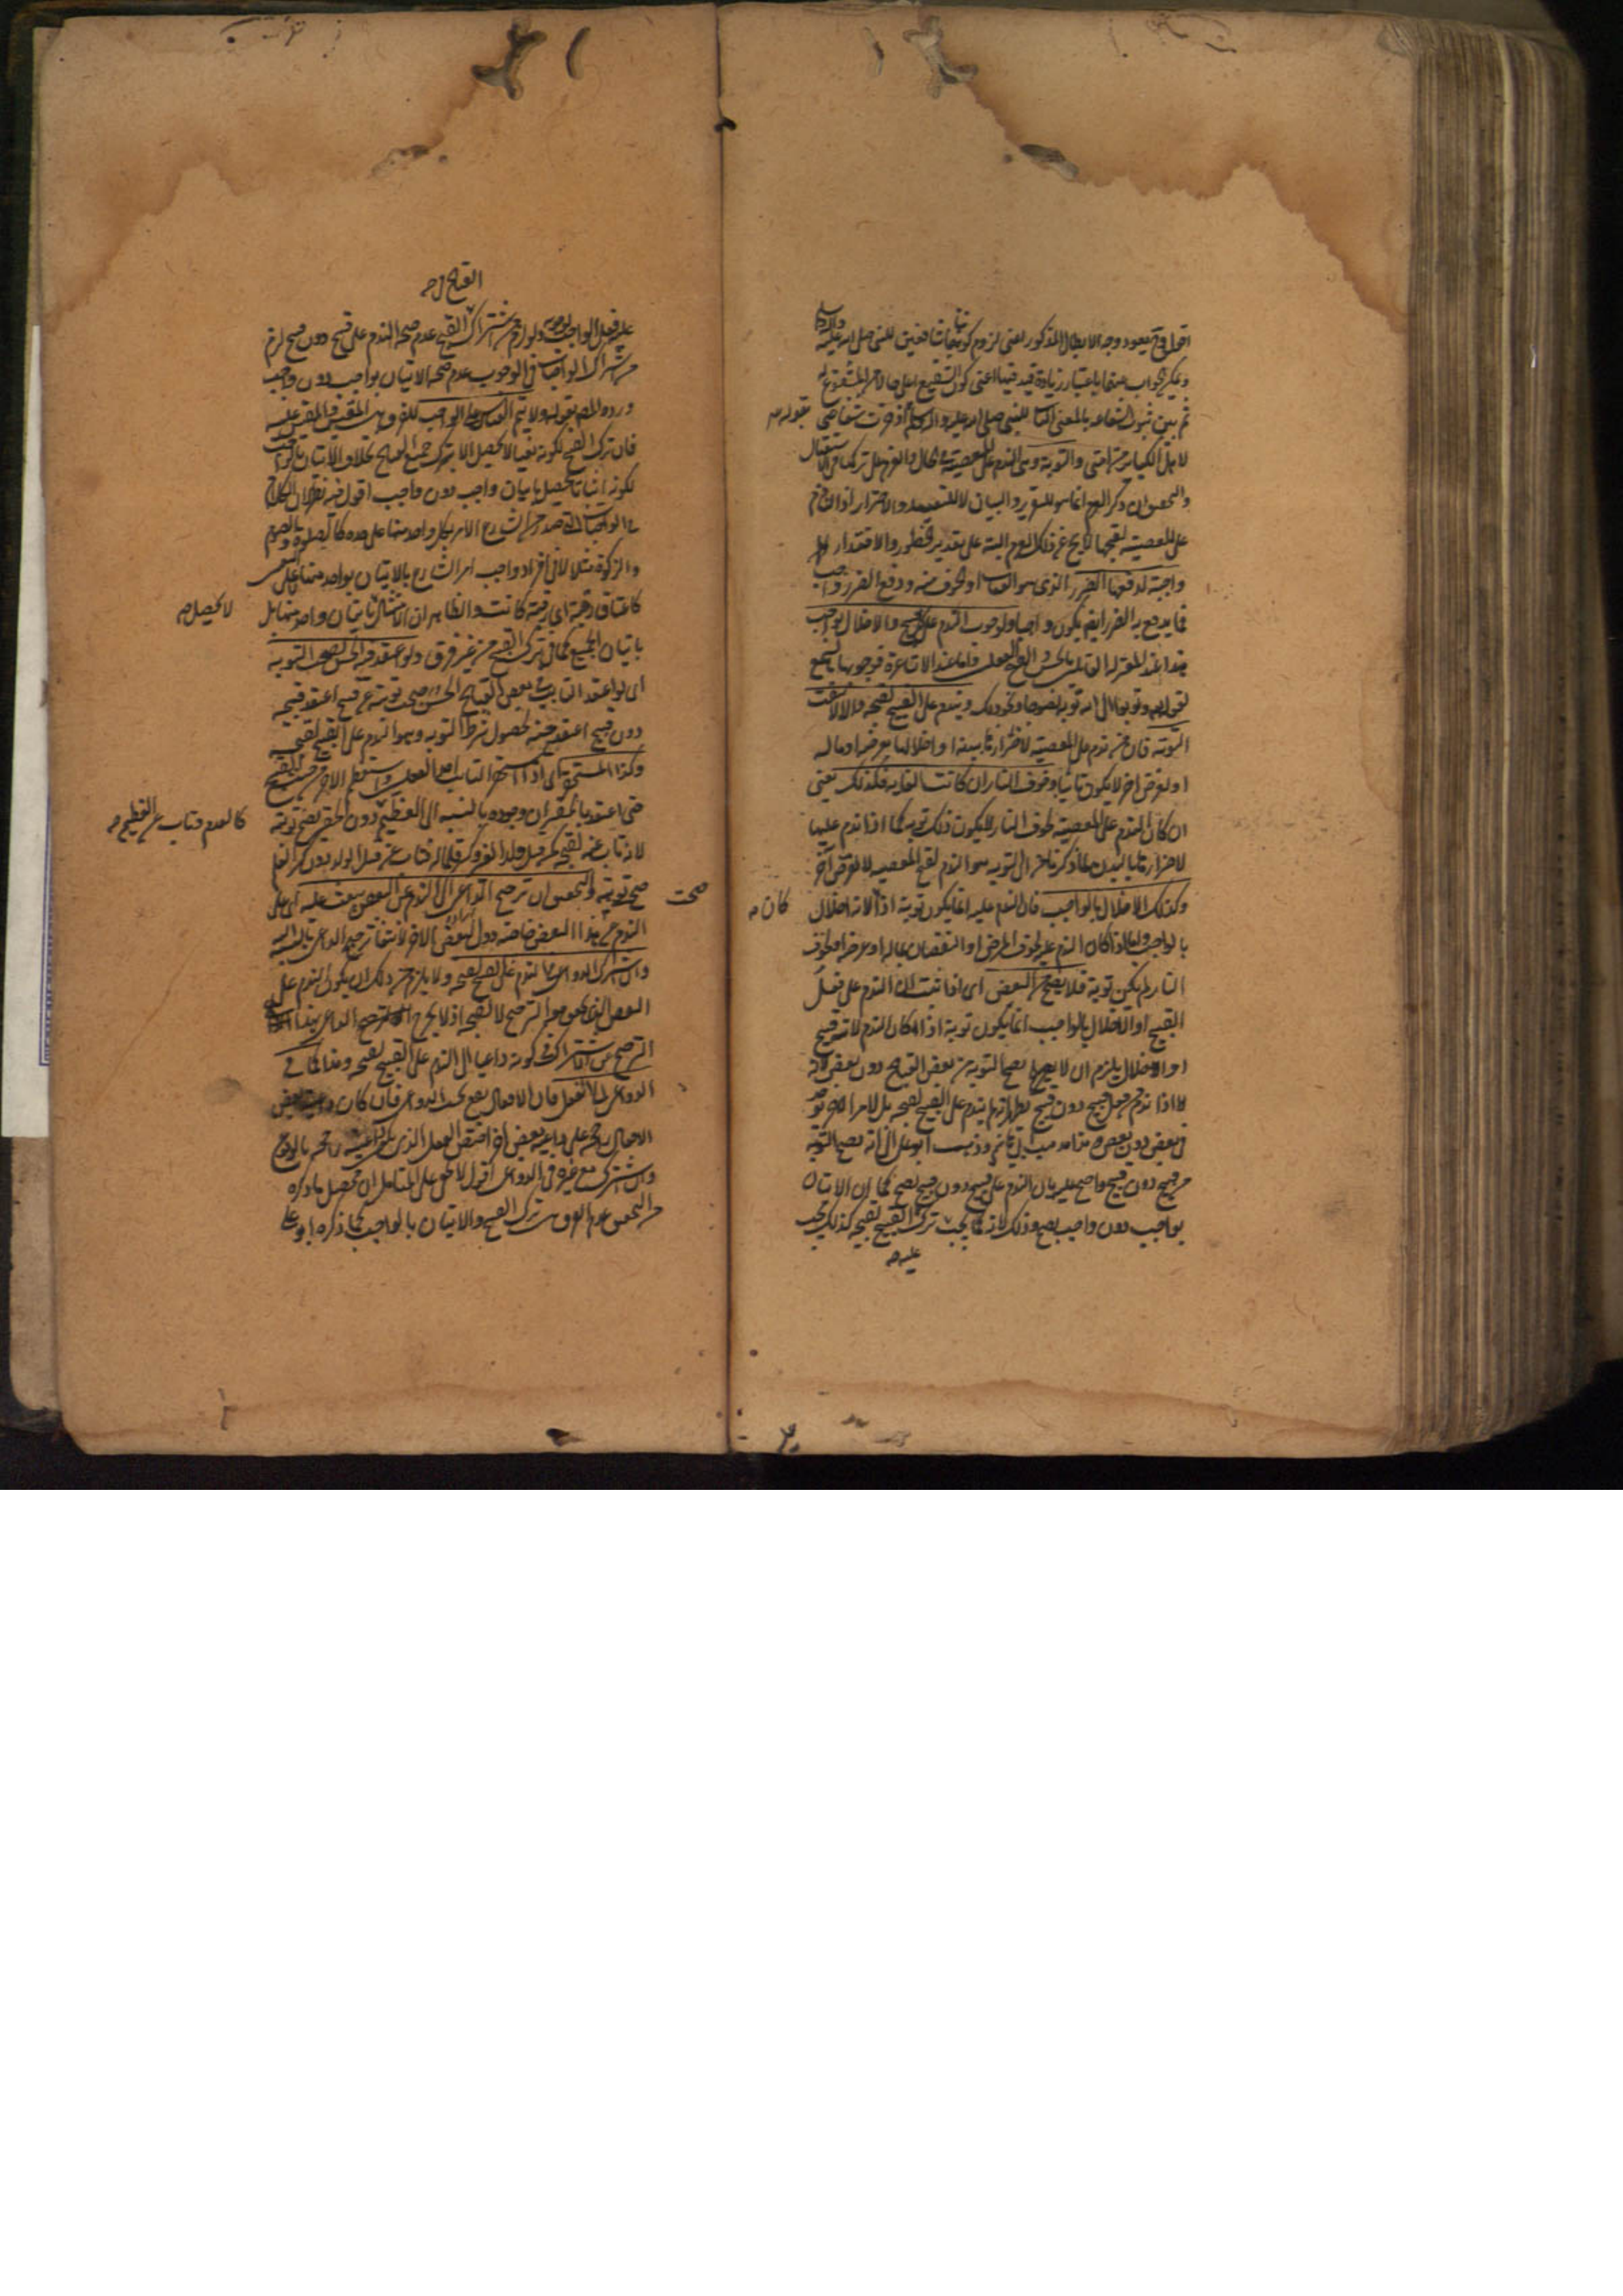 اقول وح يعود وجه الابطال المذكور يعنى لزوم كوننا شافعين للنبى صلى الله عليه وآله وسلم
ويمكن الجواب عنهما باعتبار زيادة قيد فيهما اعنى كون الشفيع اعلى حالا من المشفوع له
ثم بين ثبوت الشفاعة بالمعنى الثانى للنبى صلى الله عليه وآله وسلم بقوله ادخرت شفاعتى
لاهل الكبائر من امتى والتوبة وهى الندم على المعصية فى الحال والعزم على تركها فى الاستقبال
والتحقيق ان ذكر العزم انما هو للتقرير والبيان لا للتقييد والاحتراز اذ النادم
على المعصية لقبحها لا يخ عن ذلك العزم البتة على تقدير الخطور والاقتدار
واجبة لدفعها الضرر الذى هو العقاب او الخوف منه ودفع الضرر واجب
فما يدفع به الضرر ايضا يكون واجبا ولوجوب الندم على كل قبيح والاخلال بواجب
هذا عند المعتزلة القائلين بالحسن والقبح العقلى واما عند الاشاعرة فوجوبها بالسمع
لقوله تعالى توبوا الى الله توبة نصوحا ونحو ذلك ويندم على القبيح لقبحه والا انتفت
التوبة فان من ندم على المعصية لاضرارها ببدنه او اخلالها بعرضه او ماله
او لغرض اخر لا يكون تائبا وخوف النار ان كانت الغاية فكذلك يعنى
ان كان الندم على المعصية لخوف النار لا يكون ذلك توبة كما اذا ندم عليها
لاضرارها بالبدن لما ذكرنا من ان التوبة هو الندم لقبح المعصية لا لغرض آخر
وكذلك الاخلال بالواجب فان الندم عليه انما يكون توبة اذا كان لانه اخلال
بالواجب واما اذا كان الندم عليه لخوف المرض او النقصان بماله او عرضه او لخوف
النار لم يكن توبة فلا يصح من البعض اى اذا ثبت ان الندم على فعل
القبيح او الاخلال بالواجب انما يكون توبة اذا كان الندم لانه قبيح
او اخلال يلزم ان لا يصح التوبة من بعض القبائح دون بعض لانه
لا اذا ندم من فعل قبيح دون قبيح يظهر انه لم يندم على القبيح لقبحه بل لامر اخر يوجد
فى بعض دون بعض وهذا مذهب ابى هاشم وذهب ابو على الى انه يصح التوبة
من قبيح دون قبيح واحتج عليه بان الندم على قبيح دون قبيح يصح كما ان الاتيان
بواجب دون واجب يصح وذلك لانه كما يجب عليه ترك القبيح لقبحه كذلك يجب
عليه فعل الواجب لوجوبه ولو لزم من اشتراك القبائح فى القبح عدم صحة الندم على قبيح دون قبيح لزم
من اشتراك الواجبات فى الوجوب عدم صحة الاتيان بواجب دون واجب
ورده المص بقوله ولا يتم القياس على الواجب للفرق بين المقيس والمقيس عليه
فان ترك القبيح لكونه نفيا لا يحصل الا بترك جميع القبائح بخلاف الاتيان بالواجب
لكونه اثباتا يحصل باتيان واجب دون واجب اقول فيه نظر لان الكلام
فى الواجبات التى صدر من الشارع الامر بكل واحد منها على حده كالصلوة والصوم
والزكوة مثلا لا فى افراد واجب امر الشارع بالاتيان بواحد منها لا على التعيين
كاعتاق رقبة اى رقبة كانت والظاهر ان الامتثال لا يحصل باتيان واحد منها بل
باتيان الجميع كما فى ترك القبيح من غير فرق ولو اعتقد فيه الحسن لصحت التوبة
اى لو اعتقد التائب فى بعض القبائح الحسن صحت توبته عن قبيح اعتقد قبحه
دون قبيح اعتقد حسنه لحصول شرط التوبة وهو الندم على القبيح لقبحه
وكذا المستحقر اى اذا استحقر التائب احد الفعلين واستعظم الاخر من حيث القبح
حتى اعتقد بالحقير ان وجوده بالنسبة الى العظيم كالعدم فتاب عن العظيم دون الحقير تصح توبته
لانه تاب عنه لقبحه كمن قتل ولد الغير وكسر قلما له فتاب عن قتل الولد دون كسر القلم
صح توبته والتحقيق ان ترجيح الداعى الى الندم عن البعض يبعث عليه اى على
الندم عن هذا البعض خاصة دون البعض الاخر لانتفاء ترجيح الداعى بالنسبة اليه
وان اشترك الدواعى فى الندم على القبيح لقبحه ولا يلزم من ذلك ان يكون الندم على
البعض الذى تحقق معه الترجيح لا لقبحه اذ لا يخرج الداعى بهذا
الترجيح عن الاشتراك فى كونه داعيا الى الندم على القبيح لقبحه وهذا كما فى
الدواعى الى الفعل فان الافعال تقع بحسب الدواعى فان كان داعية بعض
الافعال راجحة على داعية بعض آخر اختص الفعل الذى داعيته راجحة بالوقوع
وان اشترك مع غيره فى الدواعى اقول لا يخفى على المتأمل ان محصل ما ذكره
من التحقيق عدم الفرق بين ترك القبيح والاتيان بالواجب كما ذكره ابو على